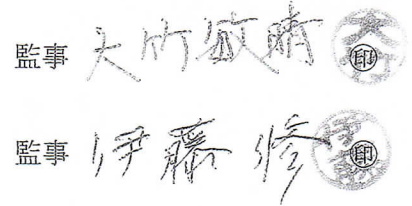 監事 大竹敏晴 ㊞
監事 伊藤修 ㊞